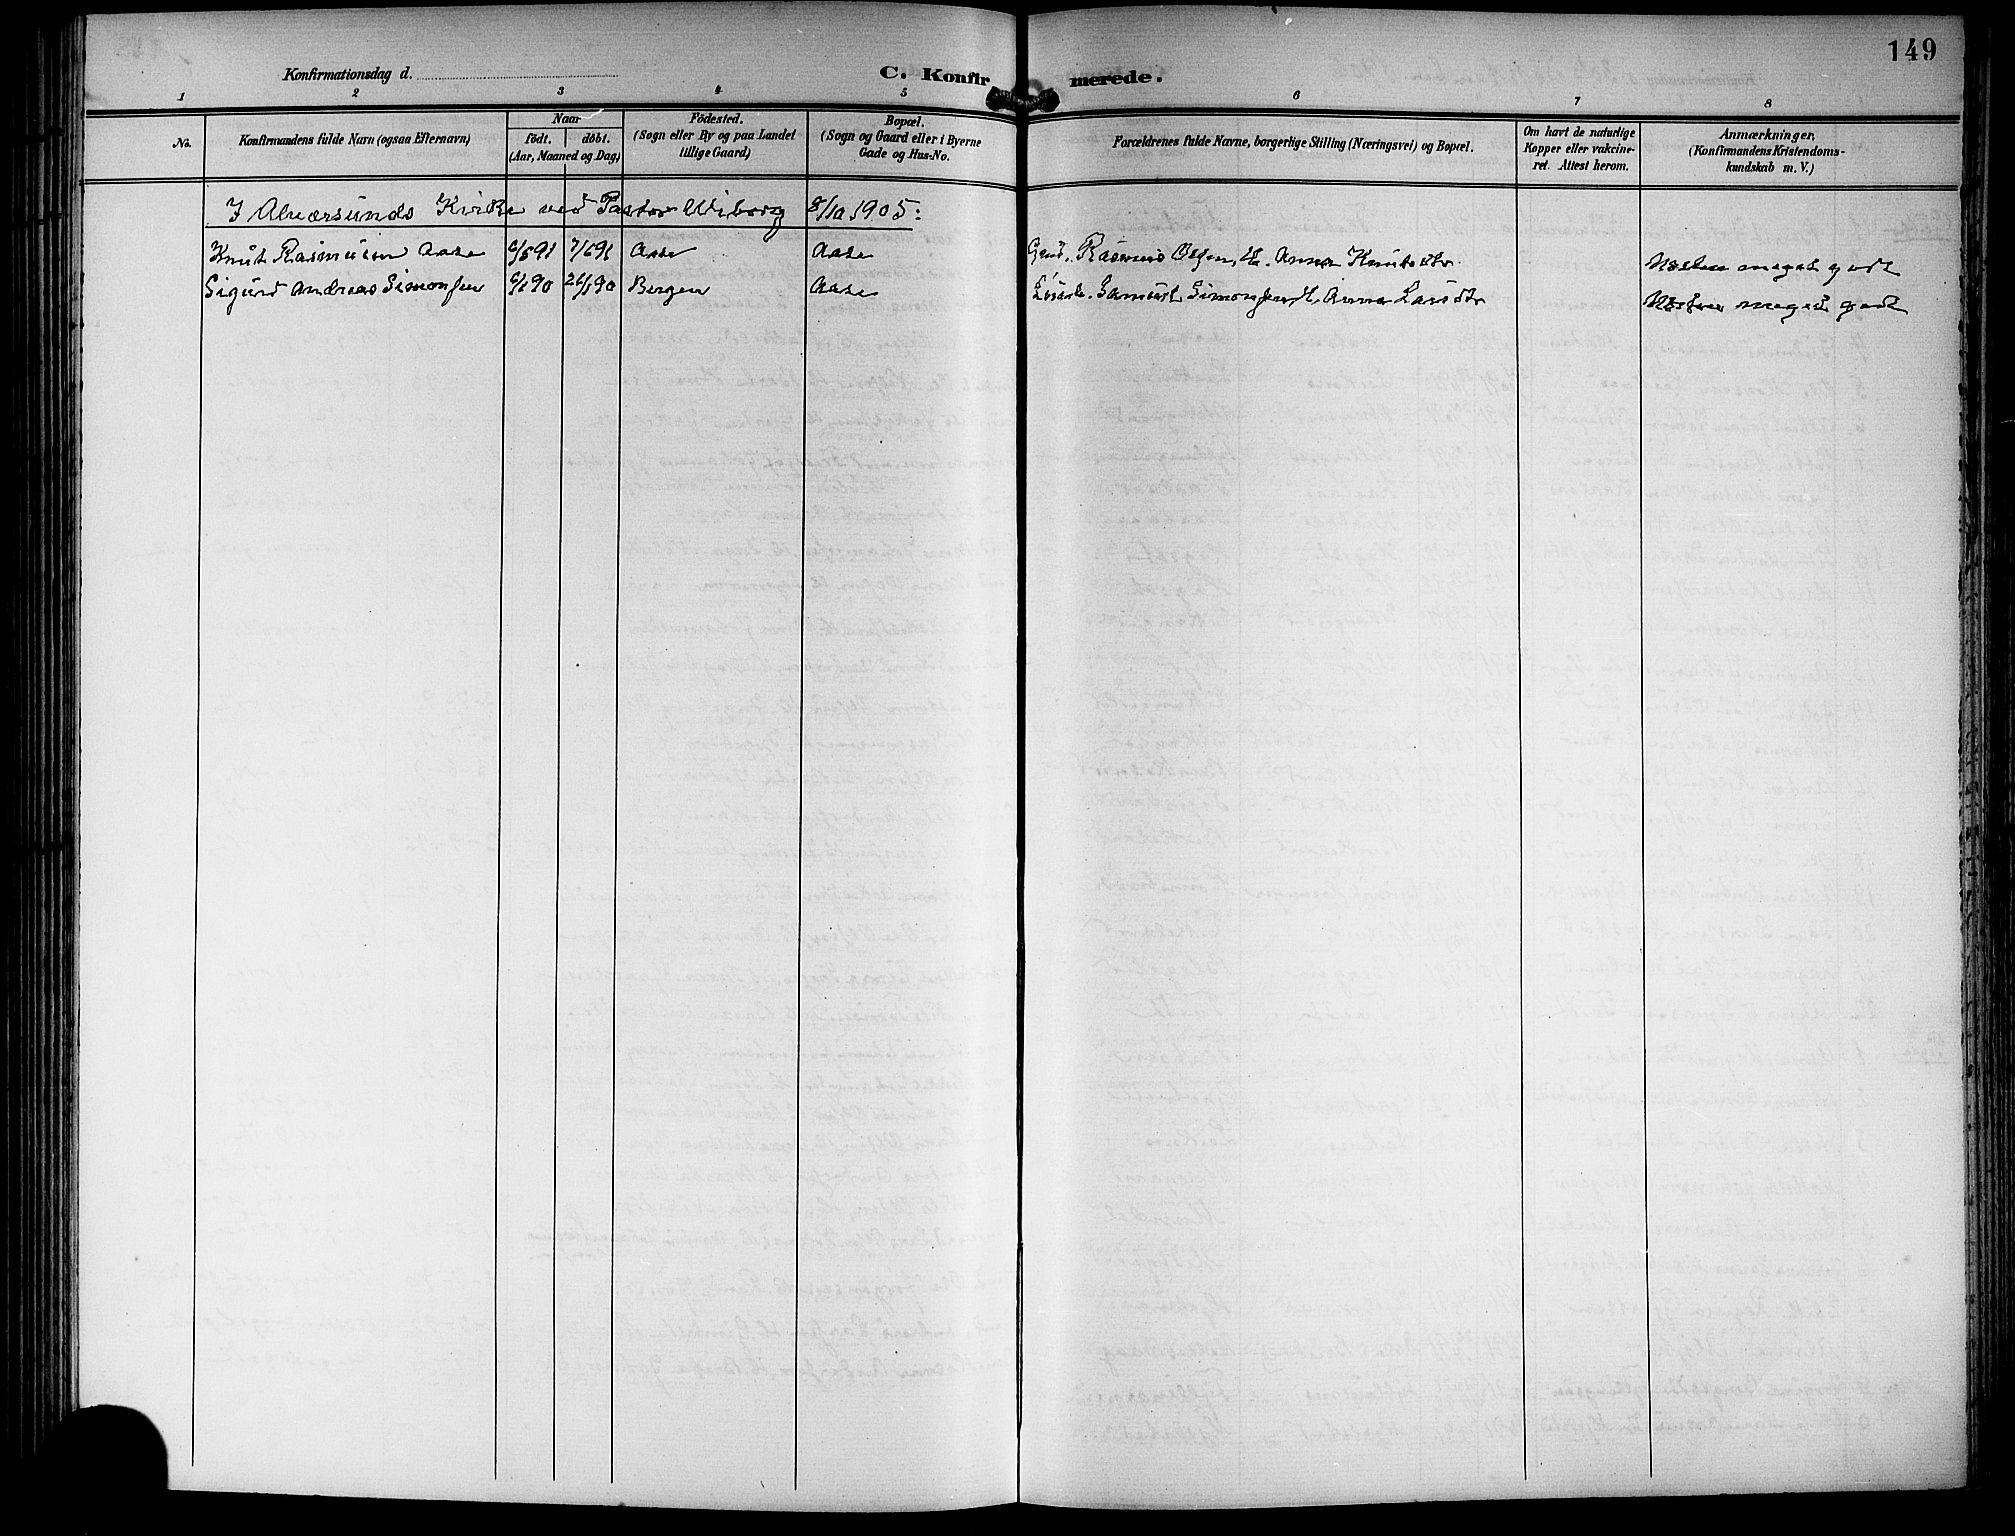 149
Konfirmationsdag d.
C. Konfirmerede.
1 2 3 4 5 6 7 8
No.
Konfirmandens fulde Navn (ogsaa Efternavn)
Naar
født. døbt.
(Aar, Maaned og Dag)
Fødested.
(Sogn eller By og paa Landet
tillige Gaard)
Bopæl.
(Sogn og Gaard eller i Byerne
Gade og Hus-No.
Forældrenes fulde Navne, borgerlige Stilling (Næringsvei) og Bopæl.
Om havt de naturlige
Kopper eller vakcine-
ret. Attest herom.
Anmærkninger.
(Konfirmandens Kristendoms-
kundskab m. V.)
I Alversunds Kirke ved Pastor Wiborg 8/10 1905:
Knut Rasmussen Aase 91 91 Aase Aase Gaud. Rasmus Olsen, H. Anna Knutsdtr. Næsten meget godt
Sigurd Andreas Simonsen 90 90 Bergen Aase Samuel Simonsen, H. Anna Larsdtr Næsten meget godt